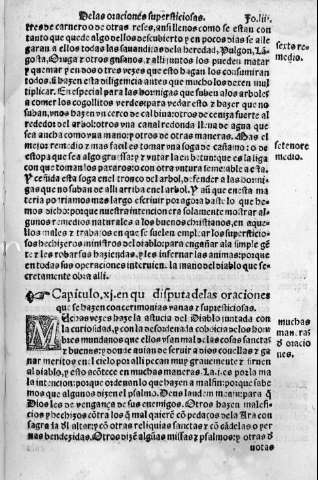 De las oraciones supersticiosas. Fo.lii.
tres de carnero o de otras reses, ansi llenos como se estan con
tanto que quede algo dellos descubierto y en pocos dias se alle
garan a ellos todas las sauandijas de la heredad, Pulgon, Lā
gosta, Oruga y otros gusanos, y alli juntos los pueden matar
y quemar y en dos o tres vezes que esto hagan los consumiran
todos, si hazen esta diligencia antes que mucho los dexen mul
tiplicar. En especial para las hormigas que suben a los arboles
a comer los cogollitos verdes: para vedar esto y hazer que no
suban, vnos hazen vn cerco de cal biua: otros de ceniza fuerte al
rededor del arbol: otros vna canal redonda llena de agua que
sea ancha como vna mano: y otros de otras maneras. Mas el
mejor remedio y mas facil es tomar vna soga de cañamo: o de
estopa que sea algo gruessa: y vntar la en betun: que es la liga
con que toman los paxaros: o con otra vntura semejable a esta.
Y ceñida esta soga en el tronco del arbol, defender a las hormi
gas que no suban de alli arriba en el arbol. Y aūn que en esta ma
teria podriamos mas largo escriuir por agora baste lo que he
mos dicho: porque nuestra intencion era solamente mostrar al
gunos remedios naturales a los buenos christianos, en aque
llos males y trabajos en que se suelen emplear los supersticio
sos hechizeros ministros del diablo: para engañar ala simple gēt
te: y les robar sus haziendas, y les infernar las animas: porque
en todas sus operaciones interuien la mano del diablo que se
cretamente obra alli.
sexto re
medio.
seteno re
medio.
☞ Capitulo, xj. en que disputa de las oraciones
que se hazen con cerimonias vanas y supersticiosas.
Muchas vezes haze la astucia del Diablo juntada con
la curiosidad, y con la desordenada cobdicia de los hom
bres mundanos que ellos vsan mal de las cosas sanctas
y buenas: y donde auian de seruir a dios con ellas y ga
nar meritos en el cielo por alli pecan muy grauemente y siruen
al diablo, y esto acōtece en muchas maneras. La j. es por la ma
la intencion: porque ordenan lo que hazen a mal fin: porque sabe
mos que algunos dizen el psalmo. Deus laudem meam: para q̄
Dios les de vengança de sus enemigos. Otros hazen malefi
cios y hechizos cōtra los q̄ mal quierē cō pedaços dela Ara con
sagrada del altar: y cō otras reliquias sanctas y cō cādelas o per
nas bendezidas. Otros dizē algūas missas y psalmos: y otras d̄
uotas
muchas
man.ras
d̄ oracio
nes.